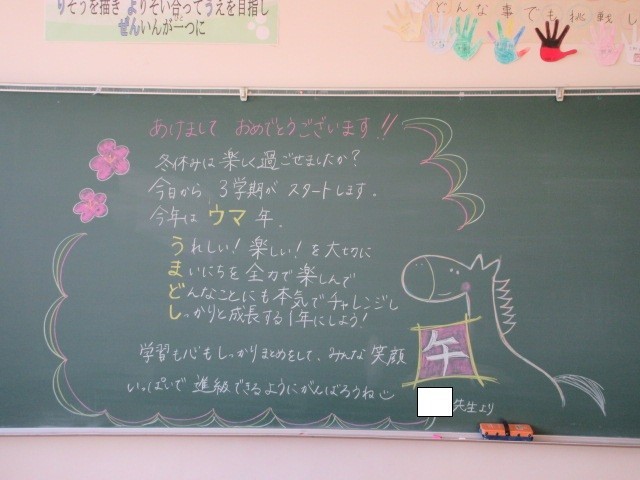 りそうを描き よりそい合ってうえを目指し
ぜんいんが一つに
どんな事でも挑戦し
あけまして おめでとうございます!!
冬休みは楽しく過ごせましたか?
今日から、3学期が スタートします。
今年は ウマ 年。
うれしい! 楽しい! を大切に
まいにちを全力で楽しんで
どんなことにも本気でチャレンジし
しっかりと成長する1年にしよう!
学習も心もしっかりまとめをして、みんな笑顔
いっぱいで 進級できるようにがんばろうね
午
先生より